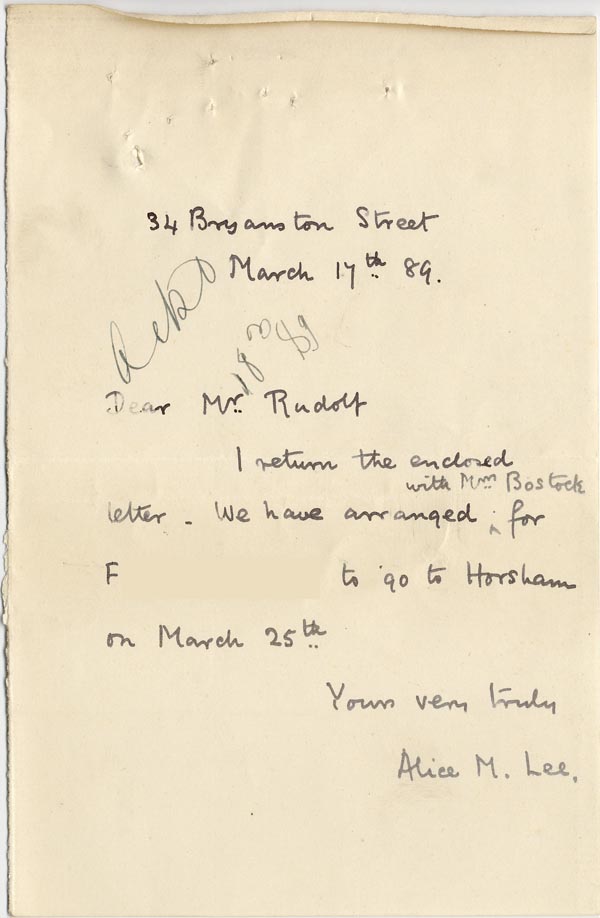 34 Bryanston Street
March 17th 89.
Ackd
18
Dear Mr. Rudolf
I return the enclosed
with Mrs Bostock
letter - We have arranged ^ for
F to go to Horsham
on March 25th
Yours very truly
Alice M. Lee.